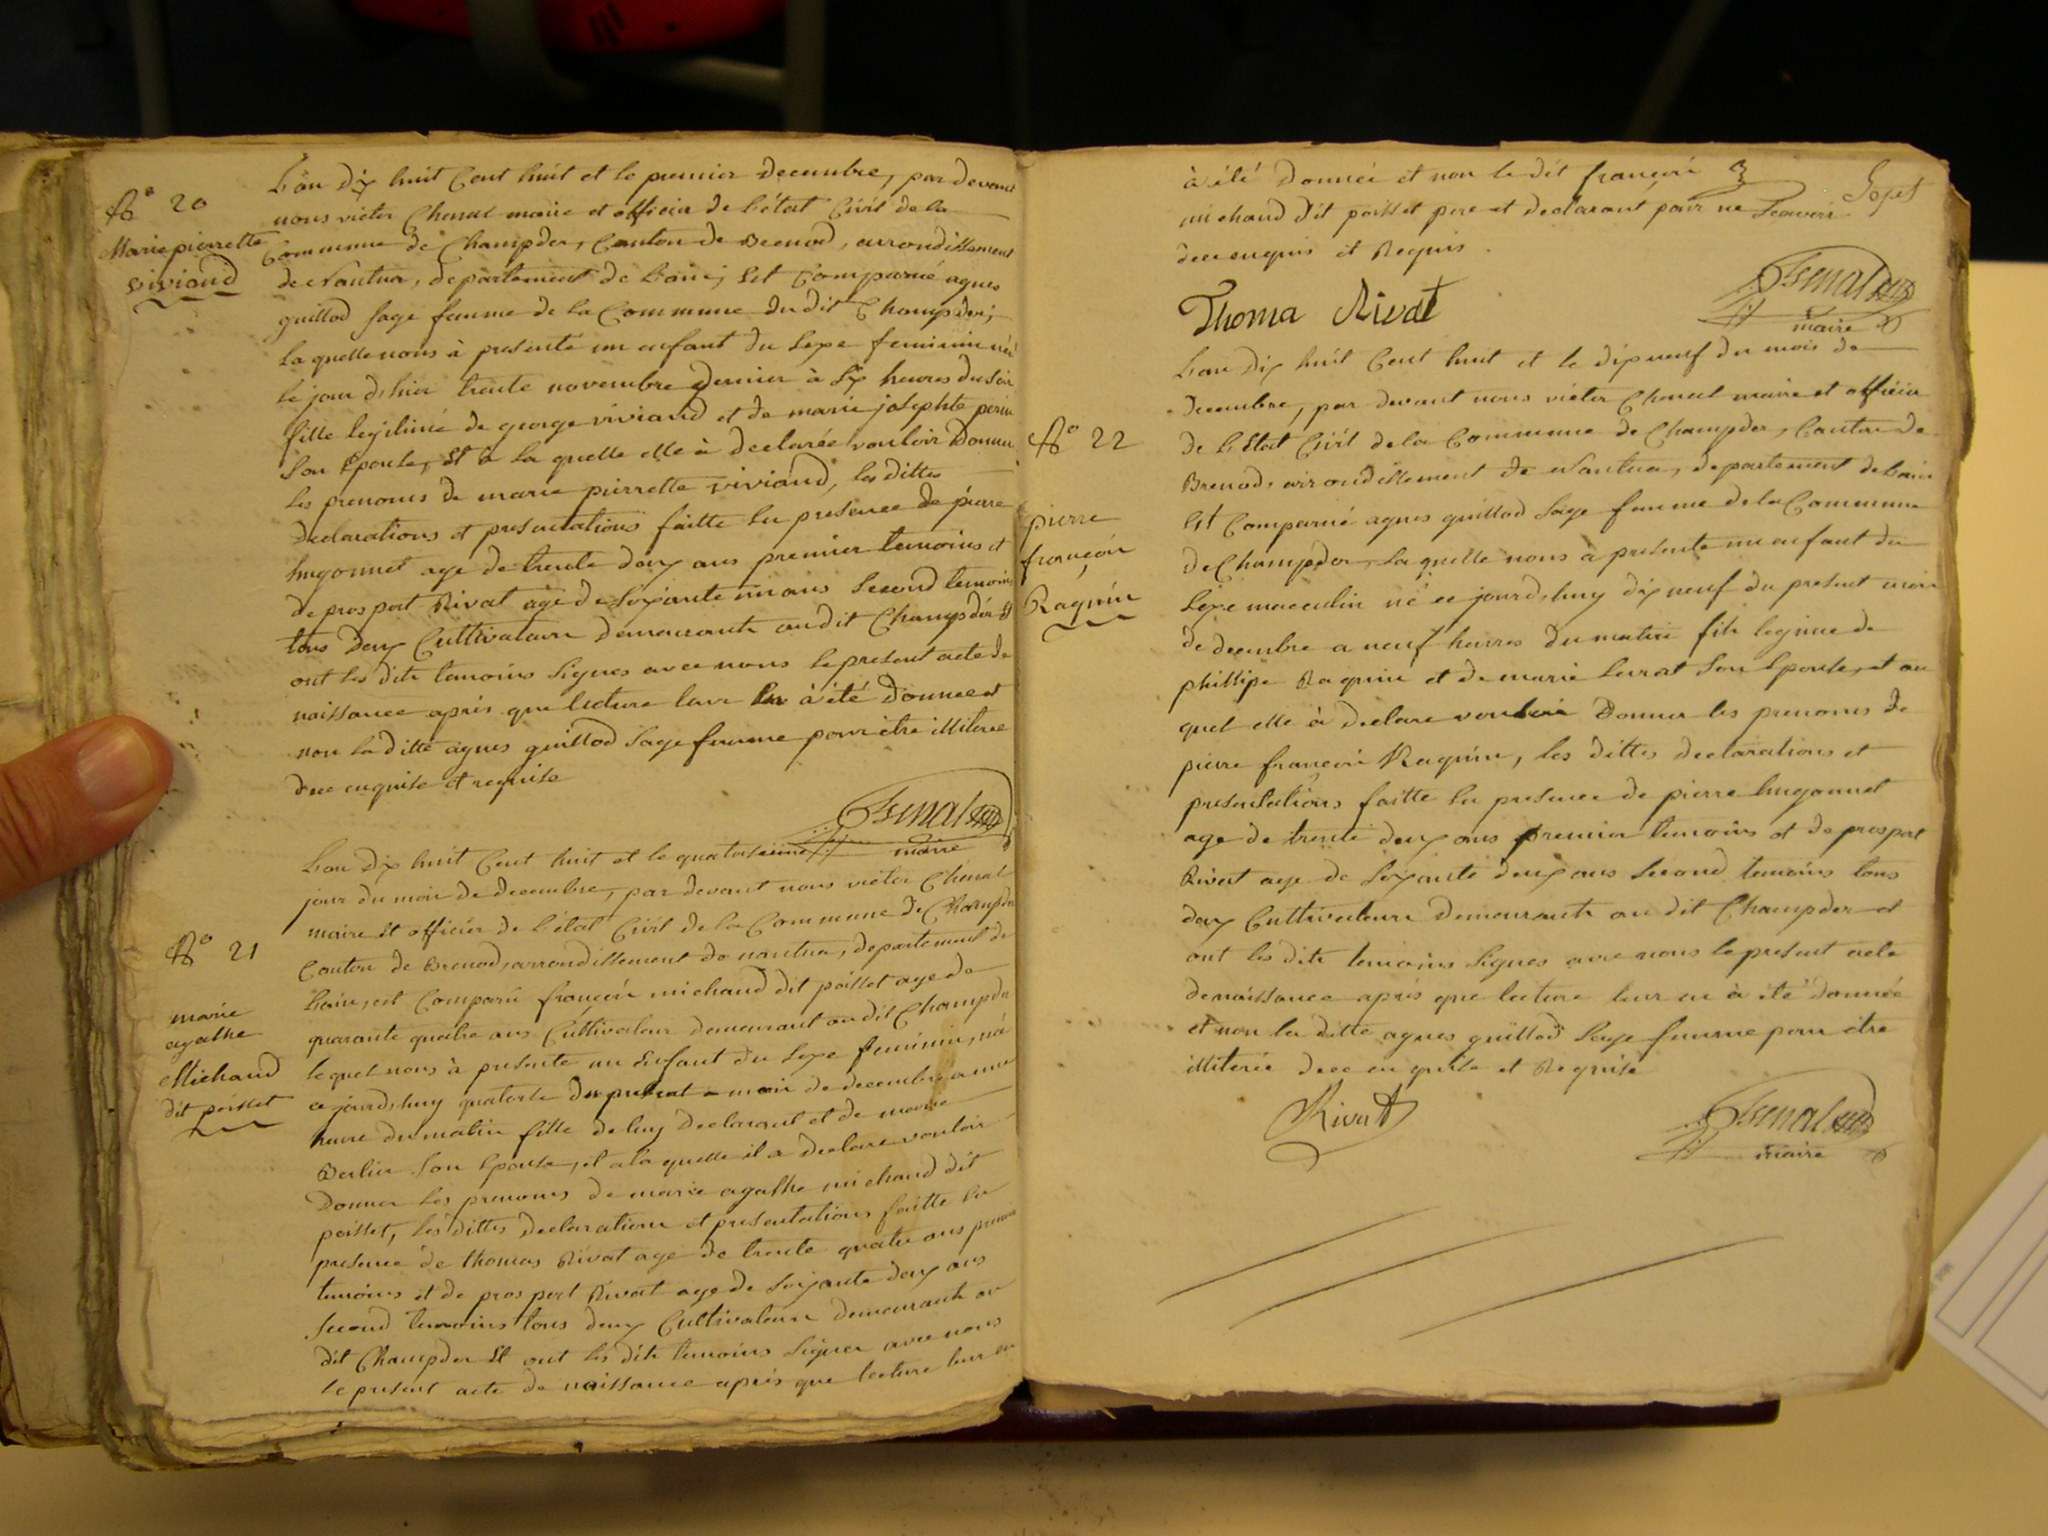 N° 20
Marie pierrette
viviand
L'an dix huit Cent huit et le premier decembre, par devant
nous victor Chenal maire et officier de l'état Civil de la
Commune de Champdor, Canton de Brenod, arrondissement
de Nantua, departement de Lain; Est Comparüe agnes
guillod sage femme de la Commune du dit Champdor,
la quelle nous à presenté un enfant du Sexe feminin né
le jour d'hier trente novembre dernier à Six heures du soir
fille legitime de george viviand et de marie josephte perin
son Epouse, Et à la quelle elle à declarée vouloir Donner
les prenoms de marie pierrette viviand, les dittes
declarations et presentations faitte En presence de pierre
hugonnet age de trente deux ans premier temoins et
de prospert Rivat age de Soixante un ans Second temoins
tous deux Cultivateurs demeurants au dit Champdor Et
ont les dits temoins Signes avec nous le present acte de
naissance apris que lecture leur En à été donnée et
non la ditte agnes guillod Sage femme pour être illiterée
dece enquise et requise
Chenal
maire
N° 21
marie
agathe
Michaud
dit poisset
L'an dix huit Cent huit et le quatorsieme
jour du mois de decembre, par devant nous victor Chenal
maire Et officier de l'état Civil de la Commune de Champdor
Canton de Brenod, arrondissement de nantua, departement de
Lain, est Comparü françois michaud dit poisset age de
quarante quatre ans Cultivateur demeurant au dit Champdor
le quel nous à presenté un Enfant du Sexe feminin, né
ce jourdshuy quatorse du present mois de decembre a une
heure du matin fille de luy declarant et de marie
Berlin Son Epouse, et a la quelle il a declare vouloir
Donner les prenoms de marie agathe michaud dit
poisset, les dittes declarations et presentations faitte En
presence de thomas Rivat age de trente quatre ans premier
temoins et de prospert Rivat age de Soixante deux ans
Second temoins tous deux Cultivateurs demeurants au
dit Champdor Et ont les dits temoins Signer avec nous
le present acte de naissance apris que lecture leur en
à été donnée et non le dit françois
michaud dit poisset pere et declarant pour ne Scavoir
dece enquis et Requis.
Sept
Thoma Rivat
Chenal
maire
N° 22
pierre
françois
Raquin
L'an dix huit Cent huit et le dix neuf du mois de
decembre, par devant nous victor Chenal maire et officier
de l'Etat Civil de la Commune de Champdor, Canton de
Brenod, arrondissement de Nantua, departement de Lain
Est Comparüe agnes guillod Sage femme de la Commune
de Champdor, la quelle nous à presenté un enfant du
Sexe masculin né ce jourdshuy dix neuf du present mois
de decembre a neuf heures du matin fils legime de
phillipe Raquin et de marie Savarat Son Epouse, et au
quel elle à declare vouloir Donner les prenoms de
pierre françois Raquin, les dittes declarations et
presentations faitte En presence de pierre hugonnet
age de trente deux ans premier temoins et de prospert
Rivat age de Soixante deux ans Second temoins tous
deux Cultivateurs demeurants au dit Champdor et
ont les dits temoins Signes avec nous le present acte
de naissance apris que lecture leur en à été donnée
et non la ditte agnes guillod Sage femme pour être
illiterée dece en quise et Requise
Rivat
Chenal
maire